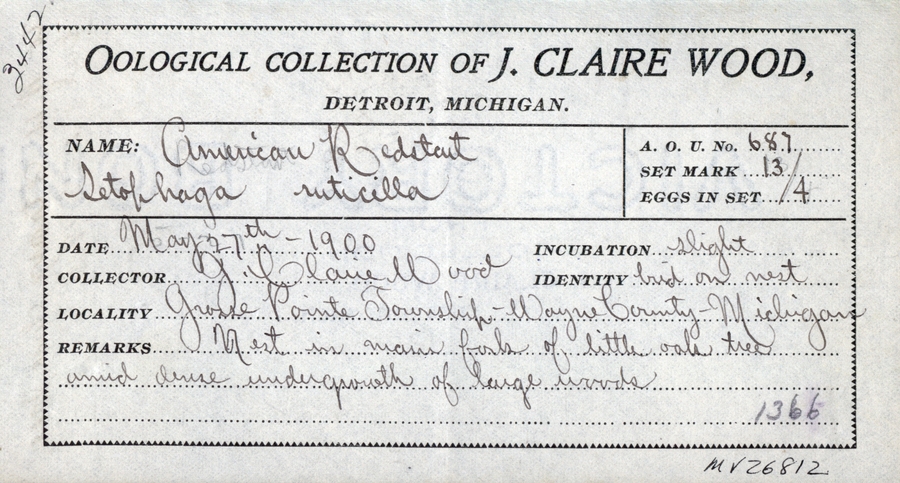 3442
OOLOGICAL COLLECTION OF J. CLAIRE WOOD,
DETROIT, MICHIGAN.
NAME: American Redstart
Setophaga ruticilla
A. O. U. No. 687
SET MARK 13/
EGGS IN SET 4
DATE May 27th - 1900
INCUBATION slight
COLLECTOR J. Claire Wood
IDENTITY bird on nest
LOCALITY Grosse Pointe Township - Wayne County - Michigan
REMARKS Nest in main fork of little oak tree
amid dense undergrowth of large woods
1366
MV26812